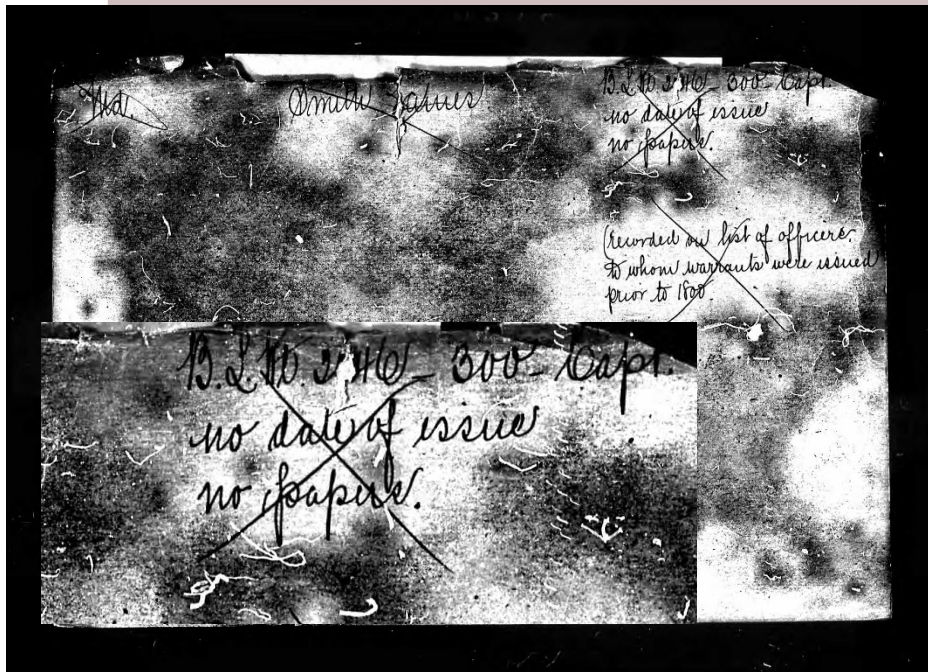 Md.
Smith James
B.L.W. 2146 - 300 - Capt.
no date of issue
no papers.
(recorded on list of officers,
to whom warrants were issued
prior to 1800.
B.L.W. 2146 - 300 - Capt.
no date of issue
no papers.